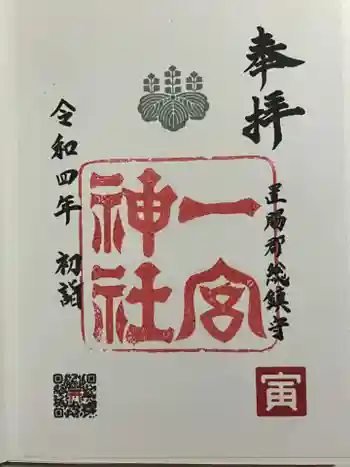 奉拝
郡総鎮守
一宮
神社
令和四年 初詣
寅